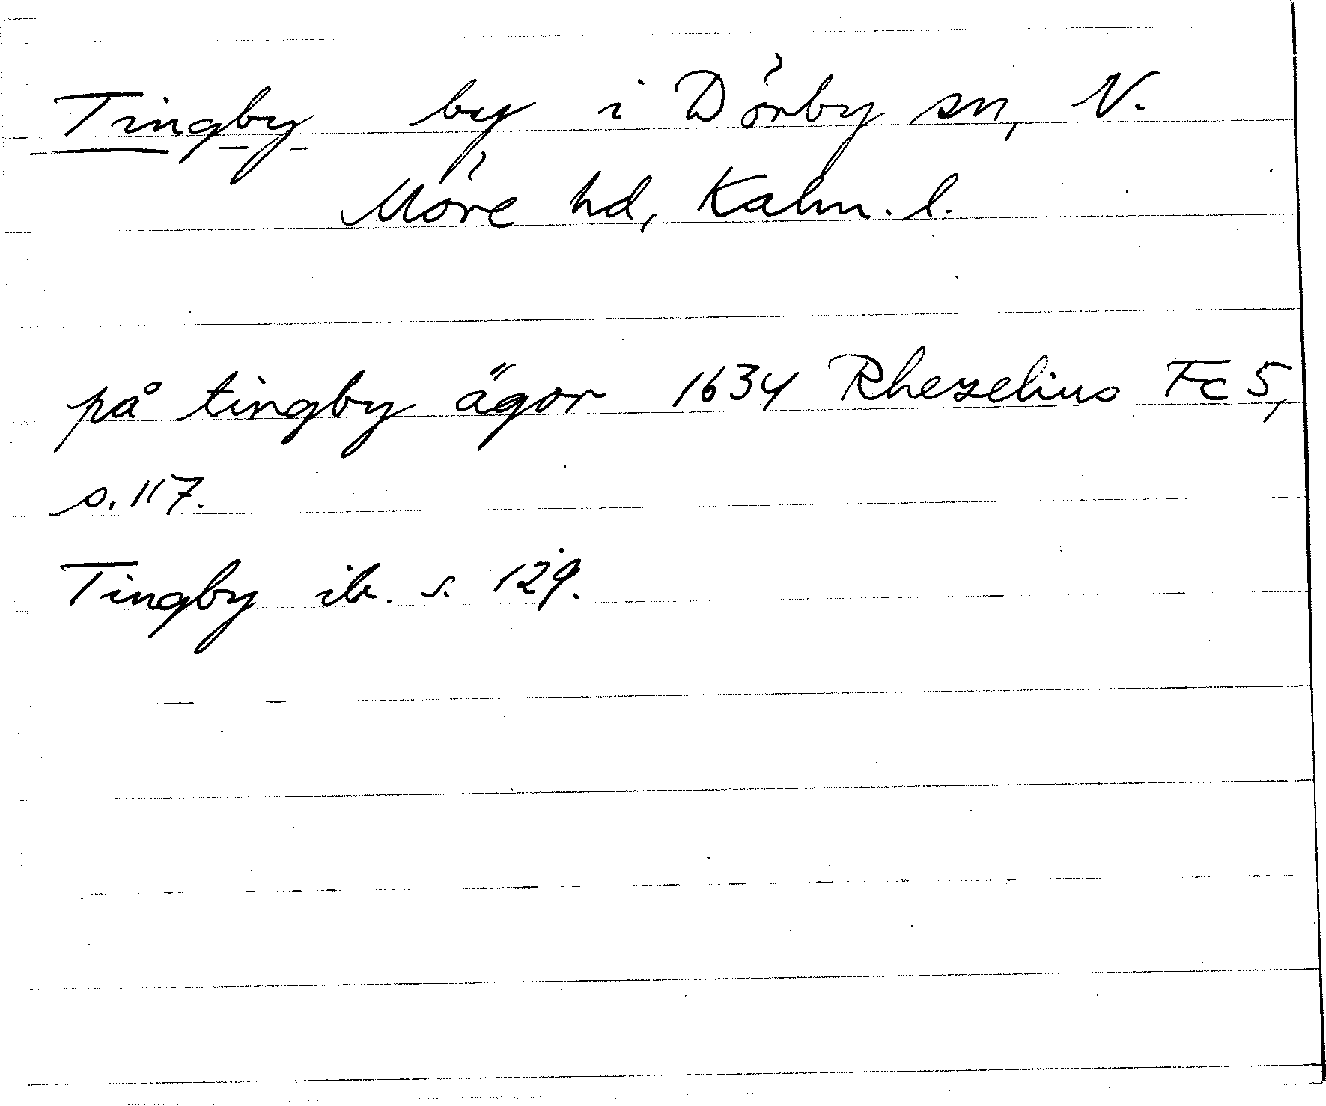 Tingby by i Dörby sn, N.
Möre hd, Kalm. l.
på tingby ägor 1634 Rhezelius Fc 5,
s. 117.
Tingby ib. s. 129.